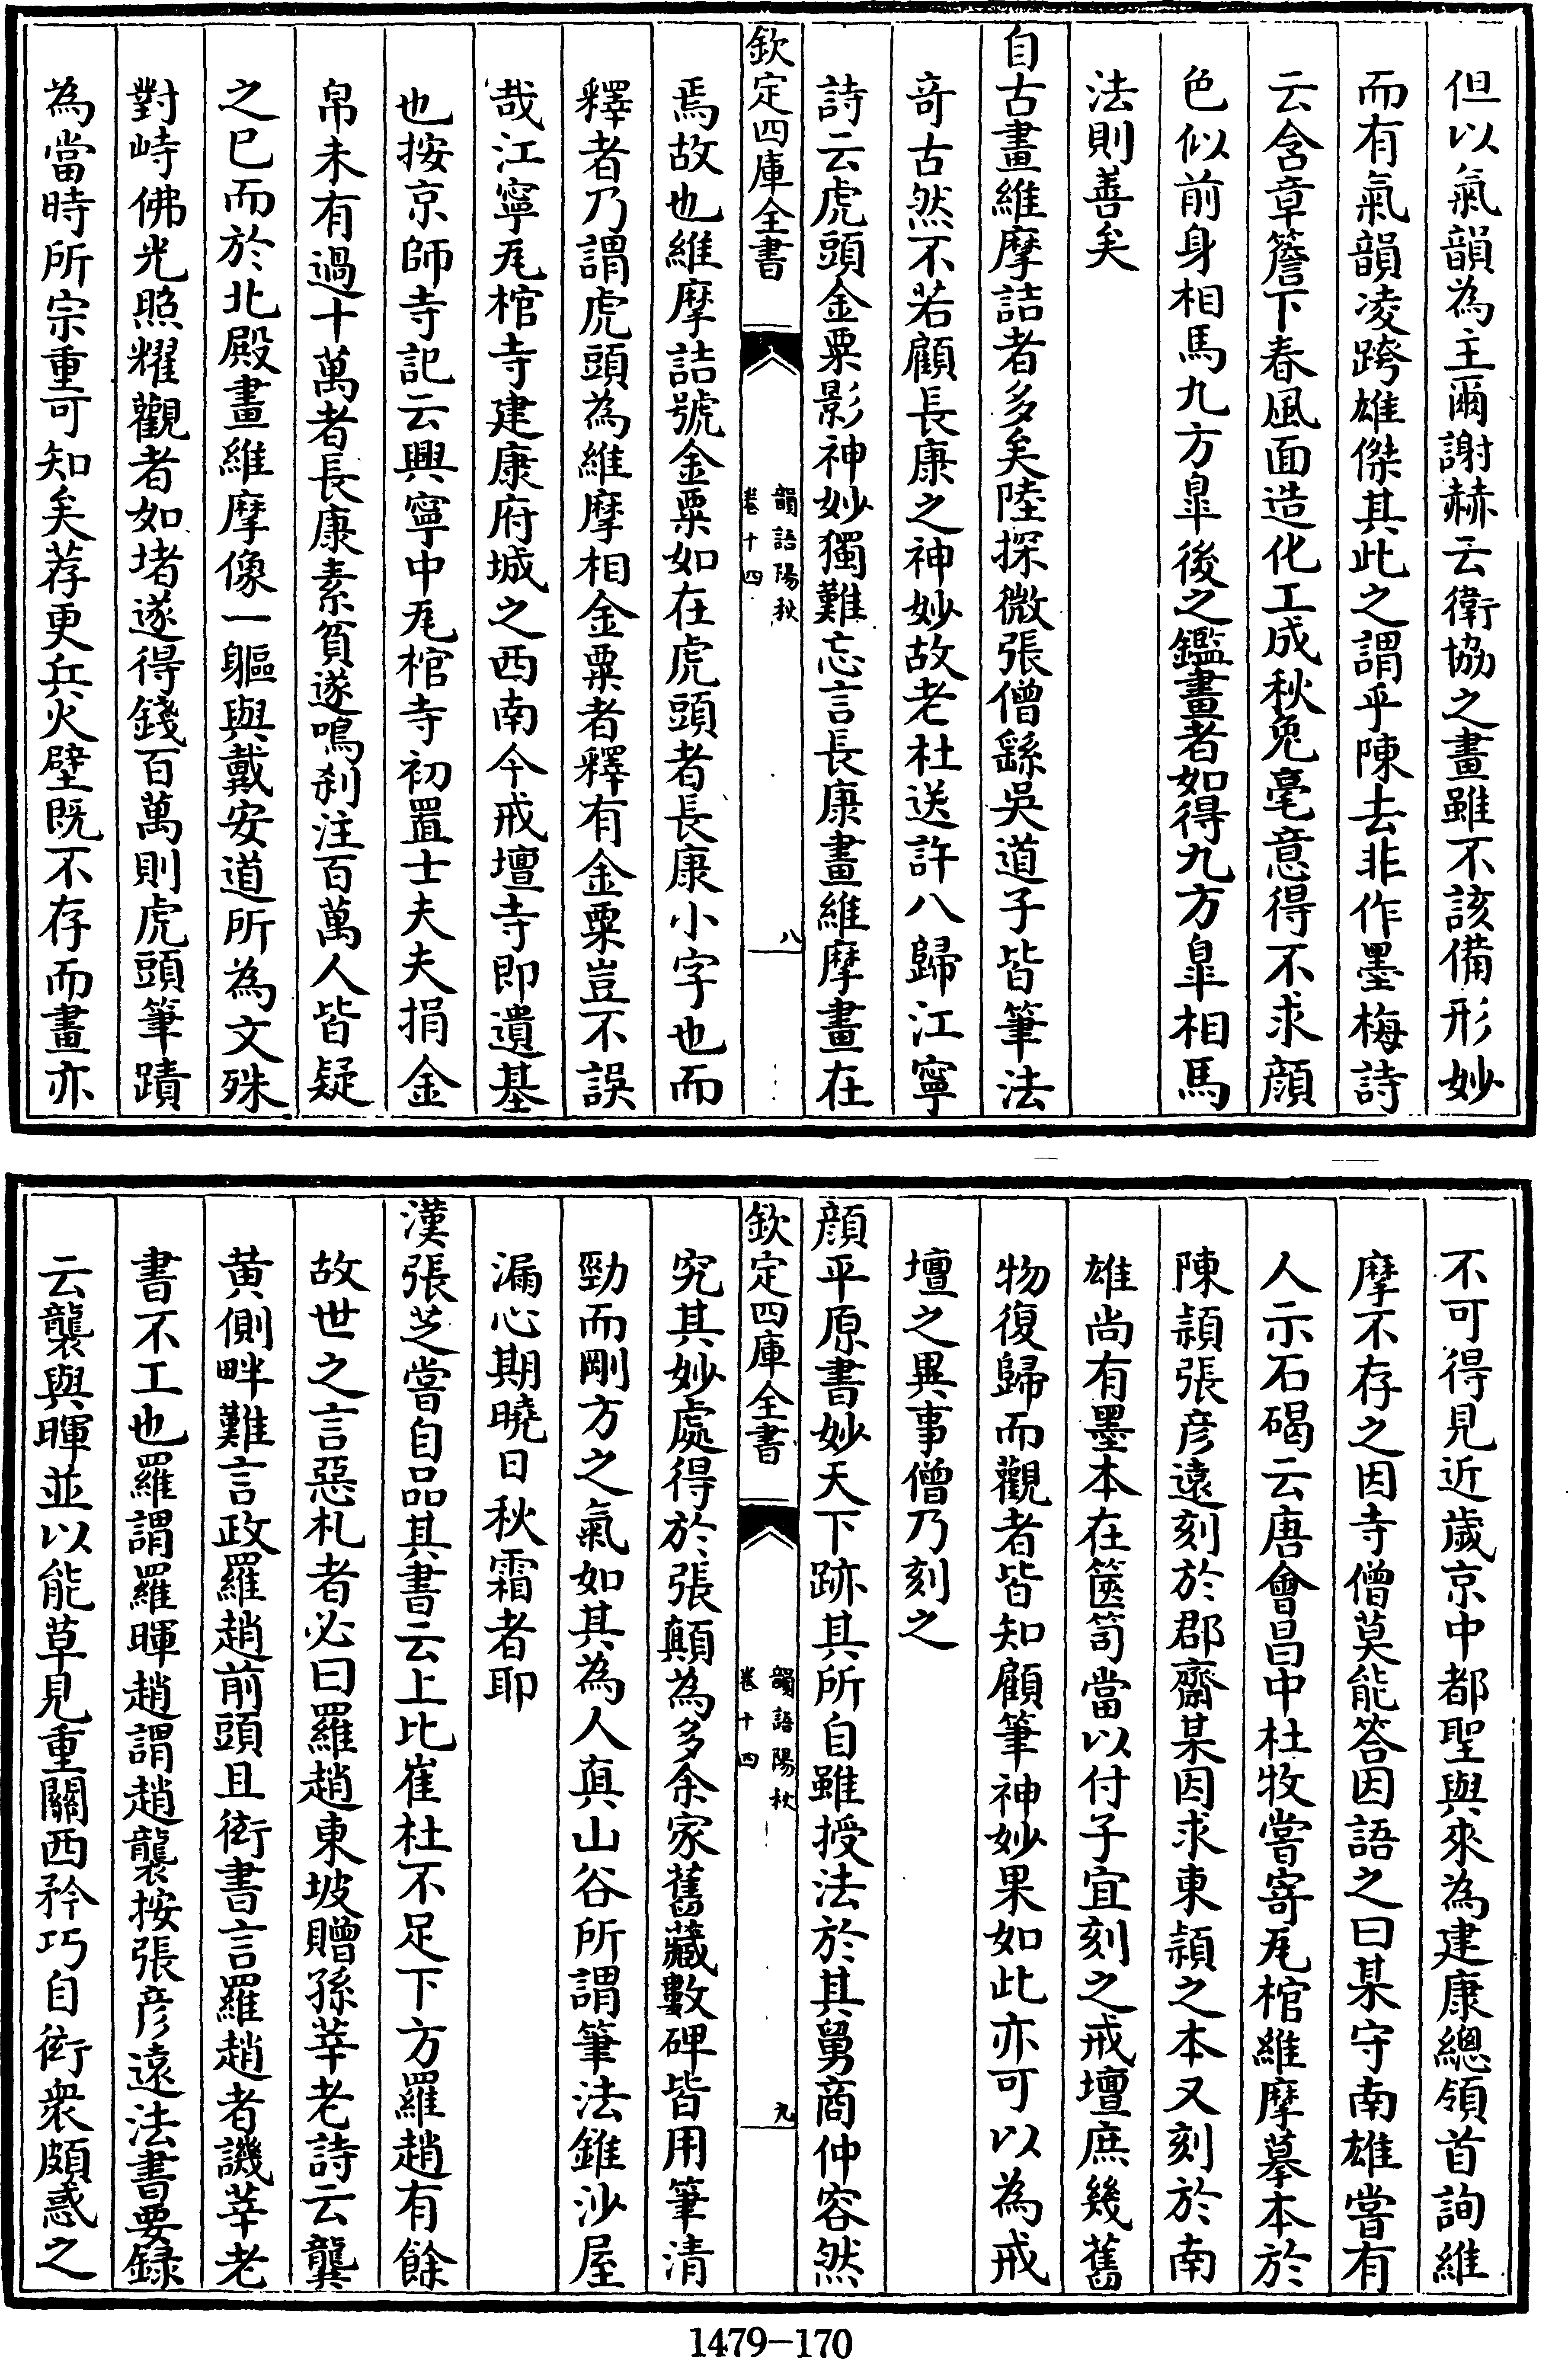 但以氣韻為主爾謝赫云衛協之畫雖不該備形妙
而有氣韻凌跨雄傑其此之謂乎陳去非作墨梅詩
云含章簷下春風面造化工成秋兔毫意得不求顔
色似前身相馬九方臯後之鑑畫者如得九方臯相馬
法則善矣
自古畫維摩詰者多矣陸探微張僧繇吳道子皆筆法
竒古然不若顧長康之神妙故老杜送許八歸江寧
詩云虎頭金粟影神妙獨難忘言長康畫維摩畫在
欽定四庫全書
韻語陽秋
卷十四
八
焉故也維摩詰號金粟如在虎頭者長康小字也而
釋者乃謂虎頭為維摩相金粟者釋有金粟豈不誤
哉江寧瓦棺寺建康府城之西南今戒壇寺即遺基
也按京師寺記云興寧中瓦棺寺初置士夫夫捐金
帛未有過十萬者長康素貧遂鳴刹注百萬人皆疑
之已而於北殿畫維摩像一軀與戴安道所為文殊
對峙佛光照耀觀者如堵遂得錢百萬則虎頭筆蹟
為當時所宗重可知矣荐更兵火壁既不存而畫亦
不可得見近歲京中都聖與來為建康總領首詢維
摩不存之因寺僧莫能答因語之曰某守南雄嘗有
人示石碣云唐會昌中杜牧嘗寄瓦棺維摩摹本於
陳潁張彥遠刻於郡齋某因求東潁之本又刻於南
雄尚有墨本在篋笥當以付子宜刻之戒壇庶幾舊
物復歸而觀者皆知顧筆神妙果如此亦可以為戒
壇之異事僧乃刻之
顔平原書妙天下跡其所自雖授法於其舅商仲容然
欽定四庫全書
韻語陽秋
卷十四
九
究其妙處得於張顛為多余家舊藏數碑皆用筆清
勁而剛方之氣如其為人真山谷所謂筆法錐沙屋
漏心期曉日秋霜者耶
漢張芝嘗自品其書云上比崔杜不足下方羅趙有餘
故世之言惡札者必曰羅趙東坡贈孫莘老詩云龔
黃側畔難言政羅趙前頭且衒書言羅趙者譏莘老
書不工也羅謂羅暉趙謂趙襲按張彥遠法書要録
云襲與暉並以能草見重關西矜巧自衒衆頗惑之
1479-170